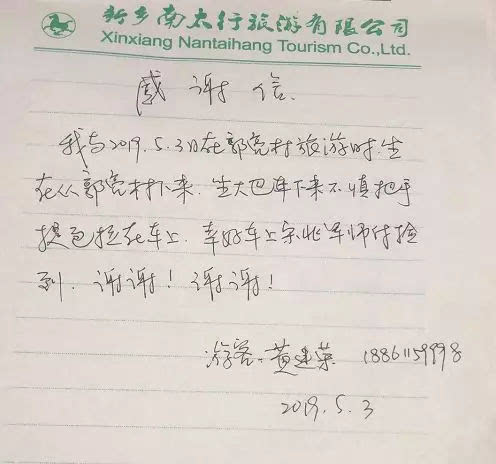 新乡南太行旅游有限公司
Xinxiang Nantaihang Tourism Co.,Ltd.
感谢信.
我与2019.5.3日在郭亮村旅游时.坐
在从郭亮村下来.坐大巴车下来不慎把手
提包拉在车上.幸好车上宋兆军师付捡
到.谢谢!谢谢!
游客.黄建荣 18861159998
2019.5.3